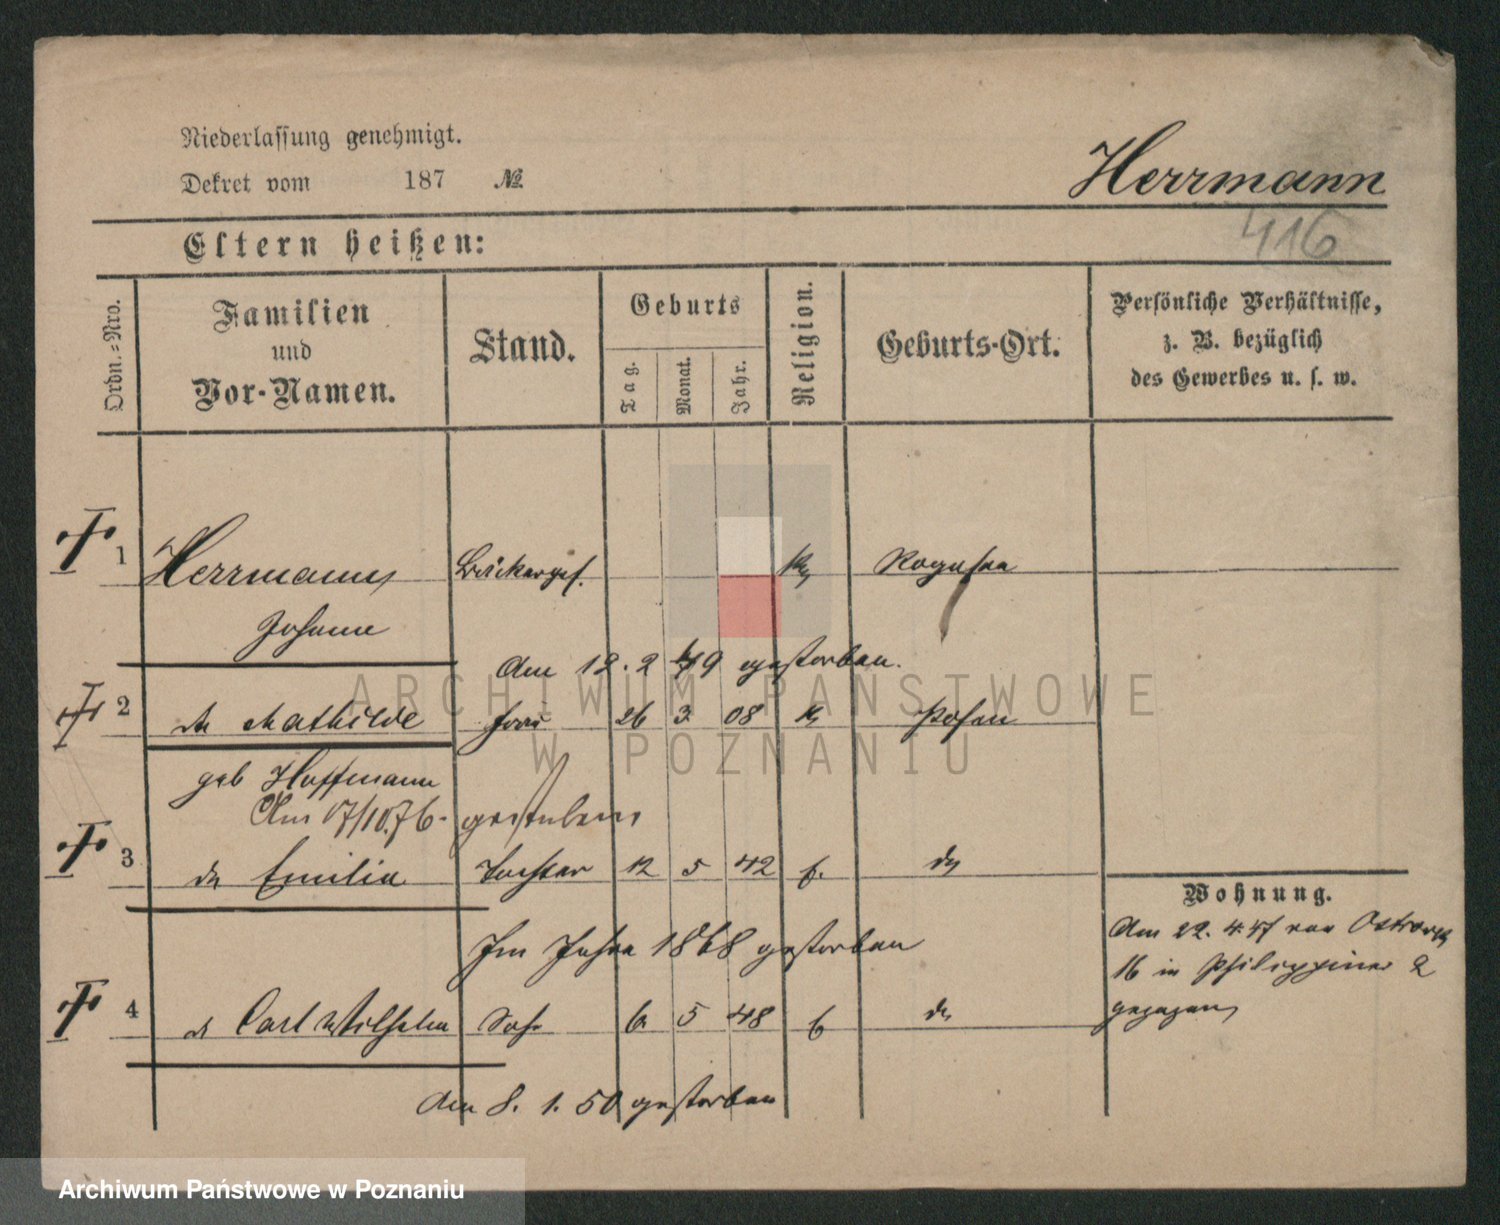 Niederlassung genehmigt.
Dekret vom 187 №
Herrmann
416
Eltern heißen:
Ordn.-Nro.
Familien
und
Vor-Namen.
Stand.
Geburts
Tag.
Monat.
Jahr.
Religion.
Geburts-Ort.
Persönliche Verhältnisse,
z. B. bezüglich
des Gewerbes u. s. w.
1 Herrmann Bäckerges. Rogasen
Johann
Am 12. 2 49 gestorben.
2 Mathilde Frau 26 3 08 Posen
geb Hoffmann
Am 17/10.76. gestorben
3 Emilie Tochter 12 5 42
Im Jahre 1868 gestorben
4 Carl Wilhelm Sohn 6 5 48
Am 8. 1. 50 gestorben
Wohnung.
Am 22. 4. 47 von
16 in Philippine 2
gezogen
ARCHIWUM PAŃSTWOWE
W POZNANIU
Archiwum Państwowe w Poznaniu